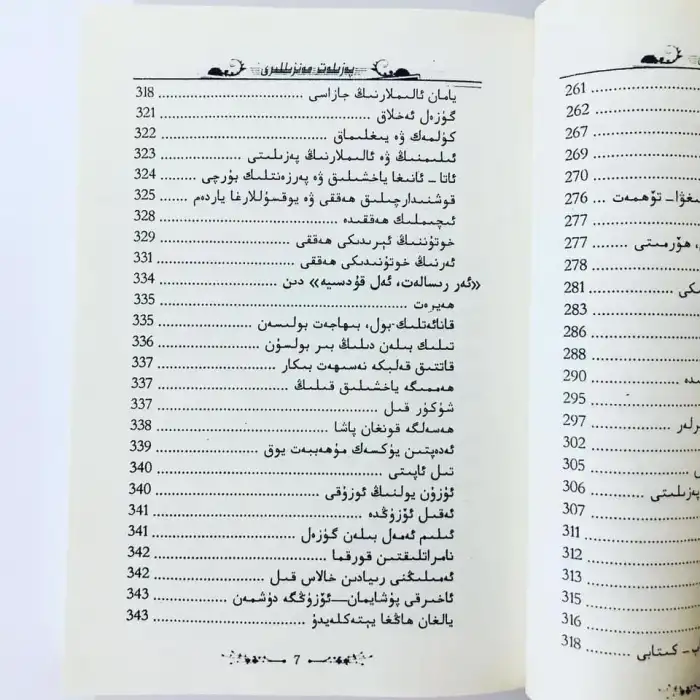 پەزىلەت مەنزىللىرى
يامان ئالىملارنىڭ جازاسى ........ 318
گۈزەل ئەخلاق ........ 321
كۈلمەك ۋە يىغلىماق ........ 322
ئىلىمنىڭ ۋە ئالىملارنىڭ پەزىلىتى ........ 323
ئاتا - ئانىغا ياخشىلىق ۋە پەرزەنتلىك بۇرچى ........ 324
قوشنىدارچىلىق ھەققى ۋە يوقسۇللارغا ياردەم ........ 325
ئىچىملىك ھەققىدە ........ 328
خوتۇننىڭ ئېرىدىكى ھەققى ........ 329
ئەرنىڭ خوتۇنىدىكى ھەققى ........ 331
«ئەر رىسالەت، ئەل قۇدسىيە» دىن ........ 334
ھەيرەت ........ 335
قانائەتلىك بول، بىھاجەت بولىسەن ........ 335
تىلىڭ بىلەن دىلىڭ بىر بولسۇن ........ 336
قاتتىق قەلبكە نەسىھەت بىكار ........ 337
ھەممىگە ياخشىلىق قىلىڭ ........ 337
شۈكۈر قىل ........ 337
ھەسەلگە قونغان پاشا ........ 338
ئەدەپتىن يۈكسەك مۇھەببەت يوق ........ 339
تىل ئاپىتى ........ 340
ئۇزۇن يولنىڭ ئوزۇقى ........ 340
ئەقىل ئۆزۈڭدە ........ 341
ئىلىم ئەمەل بىلەن گۈزەل ........ 341
نامراتلىقتىن قورقما ........ 342
ئەمىلىڭنى رىيادىن خالاس قىل ........ 342
ئاخىرقى پۇشايمان—ئۆزۈڭگە دۈشمەن ........ 343
يالغان ھاڭغا يېتەكلەيدۇ ........ 343
7
261
262
267
269
270
تۆھمەت ........ 276
277
ھۆرمىتى ........ 277
278
281
283
286
288
290
295
297
302
305
پەزىلىتى ........ 306
307
311
312
313
315
316
كىتابى ........ 318